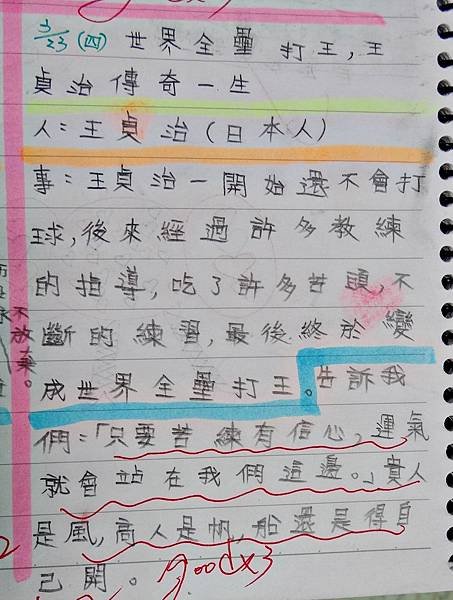 3/23(四) 世界全壘打王,王
貞治傳奇一生
人:王貞治(日本人)
事:王貞治一開始還不會打
球,後來經過許多教練
的指導,吃了許多苦頭,不
斷的練習,最後終於變
成世界全壘打王。告訴我
們:「只要苦練有信心,運氣
就會站在我們這邊。」貴人
是風,商人是帆,船還是得自
己開。 goodx3
不放棄。